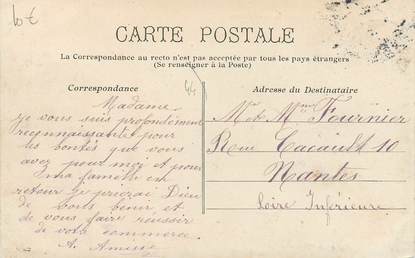 10€
CARTE POSTALE
La Correspondance au recto n'est pas acceptée par tous les pays étrangers
(Se renseigner à la Poste)
44
Correspondance
Adresse du Destinataire
Madame
je vous suis profondément
reconnaissante pour
les bontés que vous
avez pour moi et pour
ma famille en
retour je prierai Dieu
de vous bénir et
de vous faire réussir
de votre commerce.
A.
M et Mme Fournier
Rue Cacault 10
Nantes
Loire Inférieure